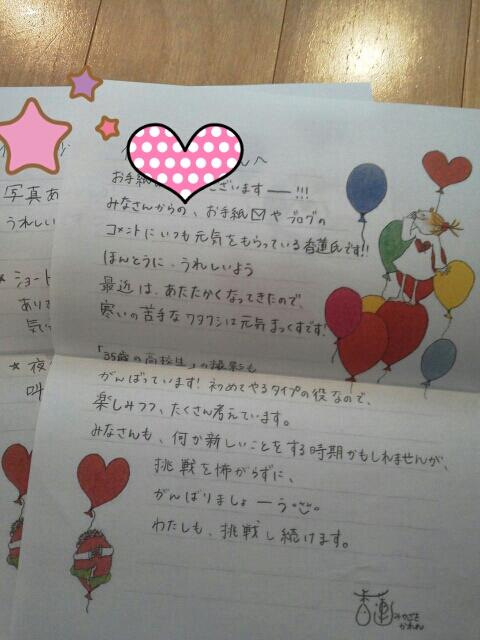 写真あ
うれしい
★ショート
ありで
気っ
★夜
叫
んへ
お手紙 ございますー!!!
みなさんからの、お手紙✉やブログの
コメントにいつも元気をもらっている香蓮氏です!!
ほんとうに、うれしいよう
最近は、あたたかくなってきたので、
寒いの苦手なワタクシは元気まっくすです!
「35歳の高校生」の撮影も
がんばっています!初めてやるタイプの役なので、
楽しみつつ、たくさん考えています。
みなさんも、何か新しいことをする時期かもしれませんが、
挑戦を怖がらずに、
がんばりましょーう
わたしも、挑戦し続けます。
香蓮 みやざき
かれん